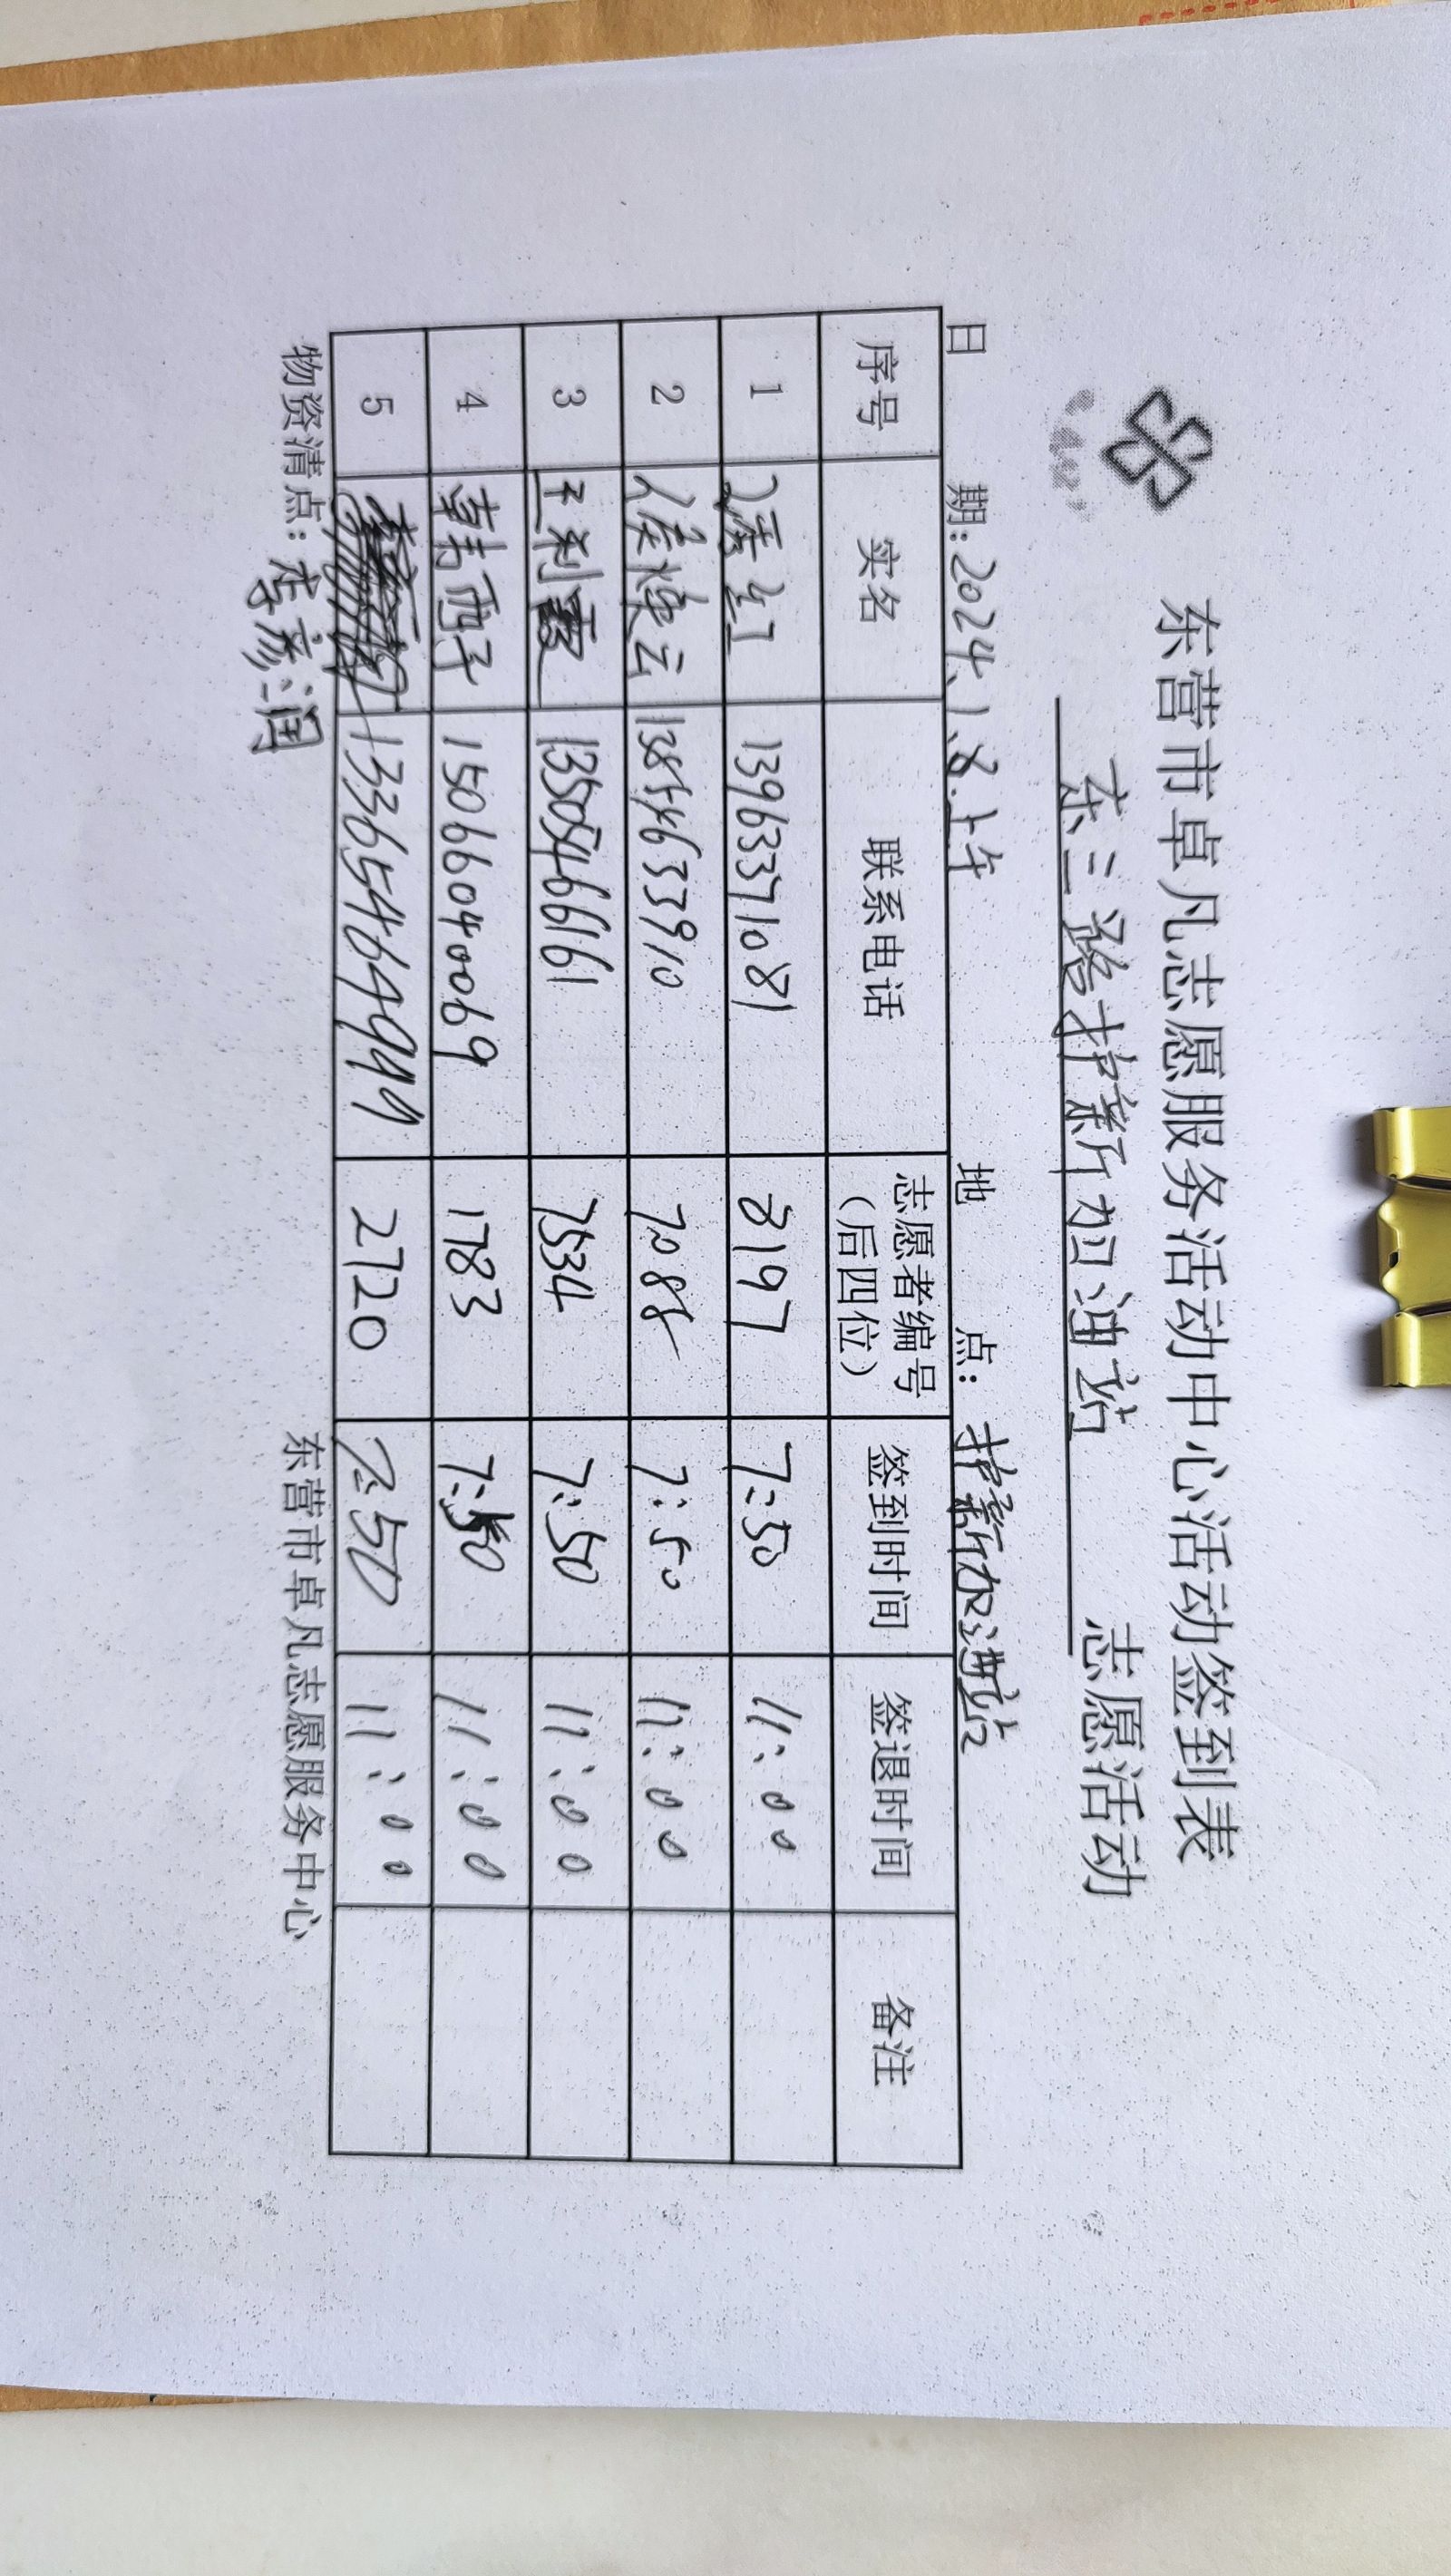 东营市卓凡志愿服务活动中心活动签到表
东三路护新加油站 志愿活动
日 期：2024、1、8.上午 地 点：护新加油站
序号 实名 联系电话 志愿者编号（后四位） 签到时间 签退时间 备注
1 红 13963371081 8197 7:50 11:00
2 侯焕云 13854633910 7088 7:50 11:00
3 王利霞 13505466161 7534 7:50 11:00
4 韩西子 15066040069 1783 7:50 11:00
5 13365464999 2720 7:50 11:00
物资清点：李彦润 东营市卓凡志愿服务中心